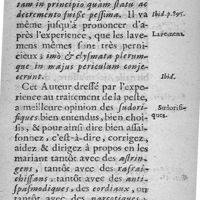 tam in principio quàm ſtatu ac
decremento fuiſſe peſſima. Il va Ibid. p. 595.
même juſqu'à prononcer d'a-
près l'experience, que les lave- Lavemens.
mens mêmes ſont très perni-
cieux : imò & clyſmata plerum-
que in majus periculum conje-
cerunt. Ibid.
Cet Auteur dreſſé par l'expe-
rience au traitement de la peſte,
a meilleure opinion des ſudori- Sudorifi-
fiques bien entendus, bien choi- ques.
ſis, & pour ainſi dire bien aſſai-
ſonnez, c'eſt-à-dire, corrigez,
aidez & dirigez à propos en les
mariant tantôt avec des aſtrin-
gens, tantôt avec des rafraî-
chiſſans, tantôt avec des anti-
ſpaſmodiques, des cordiaux, ou
tantôt avec des narcotiques :